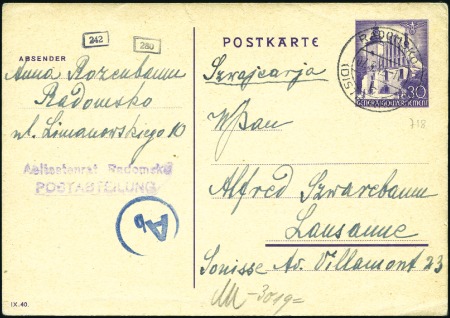 242
280
ABSENDER
Anna Rozenbaum
Radomsko
ul. Limanowskiego 10
Aeltestenrat Radomsko
POSTABTEILUNG
Ab
IX.40.
POSTKARTE
RADOMSKO
30
GENERALGOUVERNEMENT
718
Szwajcarja
WPan
Alfred Szwarcbaum
Lausanne
Souisse Av. Villamont 23